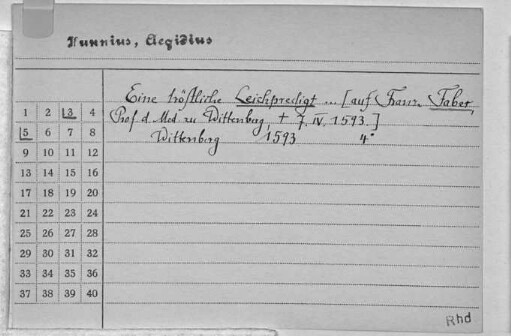 Hunnius, Aegidius
Eine tröstliche Leichpredigt ... [auf Franz Faber,
Prof d. Med. zu Wittenberg, + 7. IV. 1593.]
Wittenberg 1593 4°
1 2 3 4
5 6 7 8
9 10 11 12
13 14 15 16
17 18 19 20
21 22 23 24
25 26 27 28
29 30 31 32
33 34 35 36
37 38 39 40
Rhd